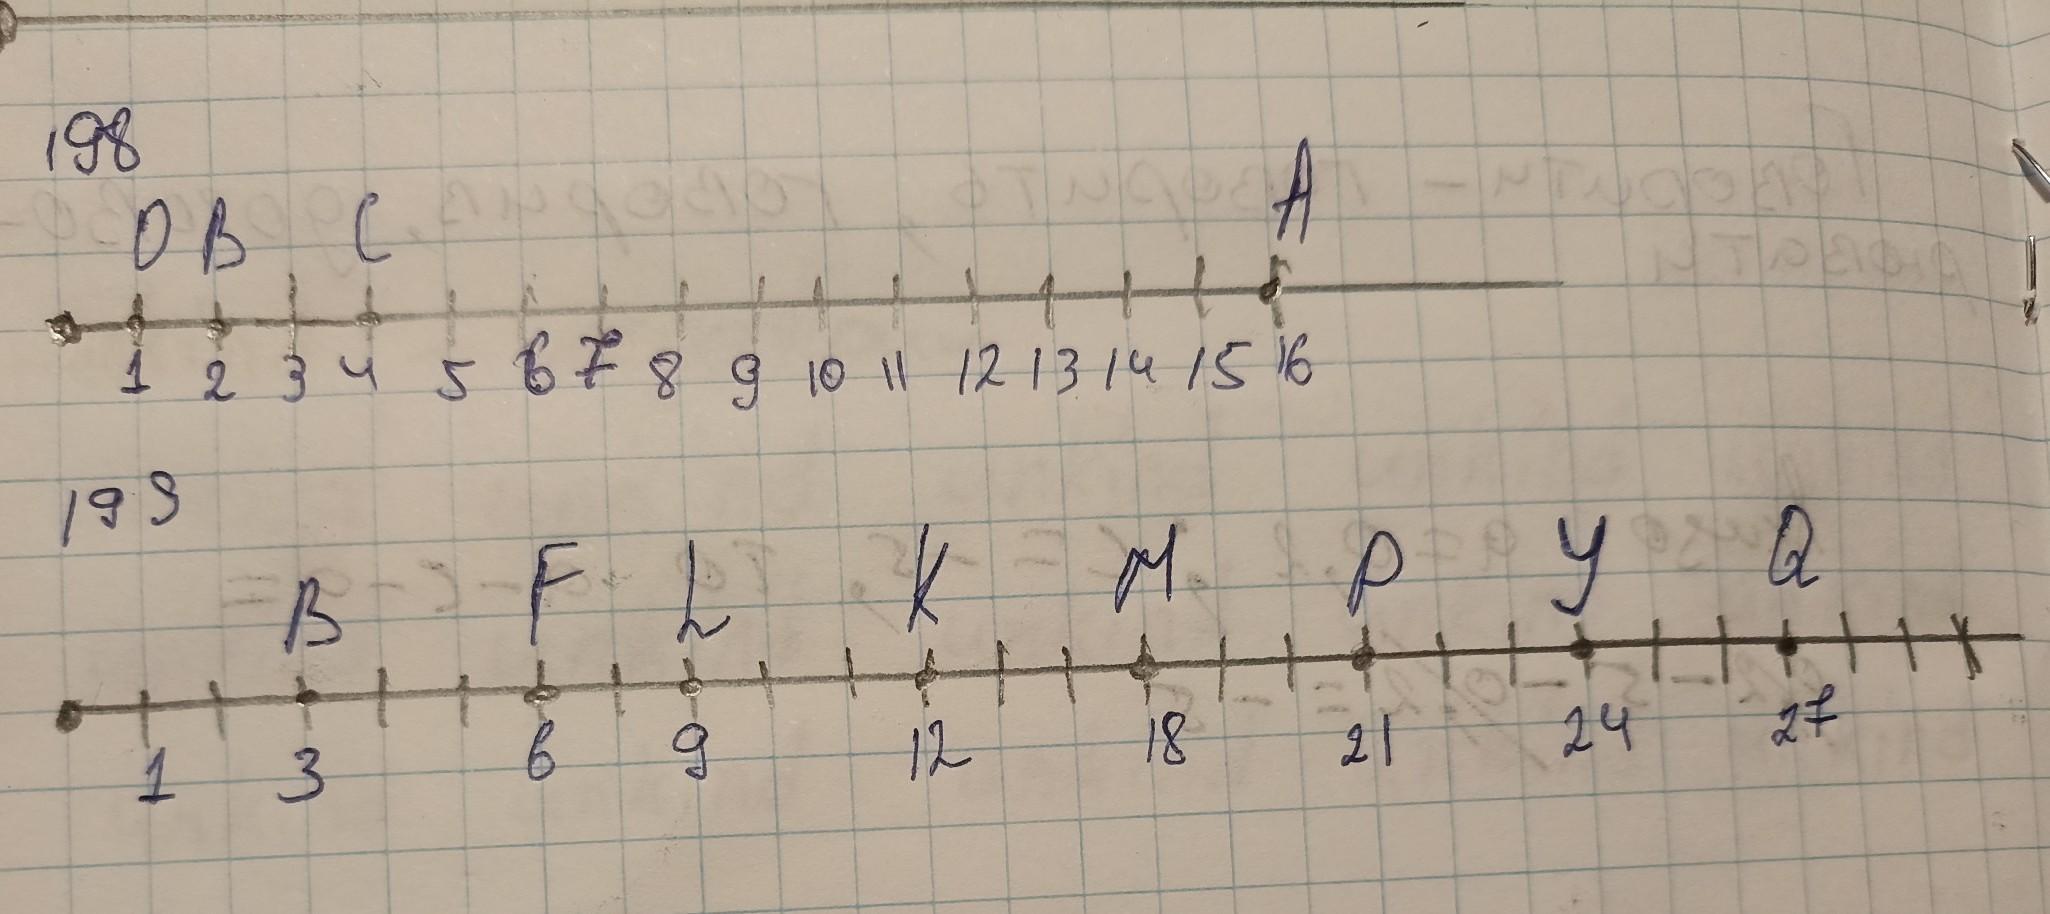 198
O B C A
1 2 3 4 5 6 7 8 9 10 11 12 13 14 15 16
199
B F L K M P Y Q
1 3 6 9 12 18 21 24 27